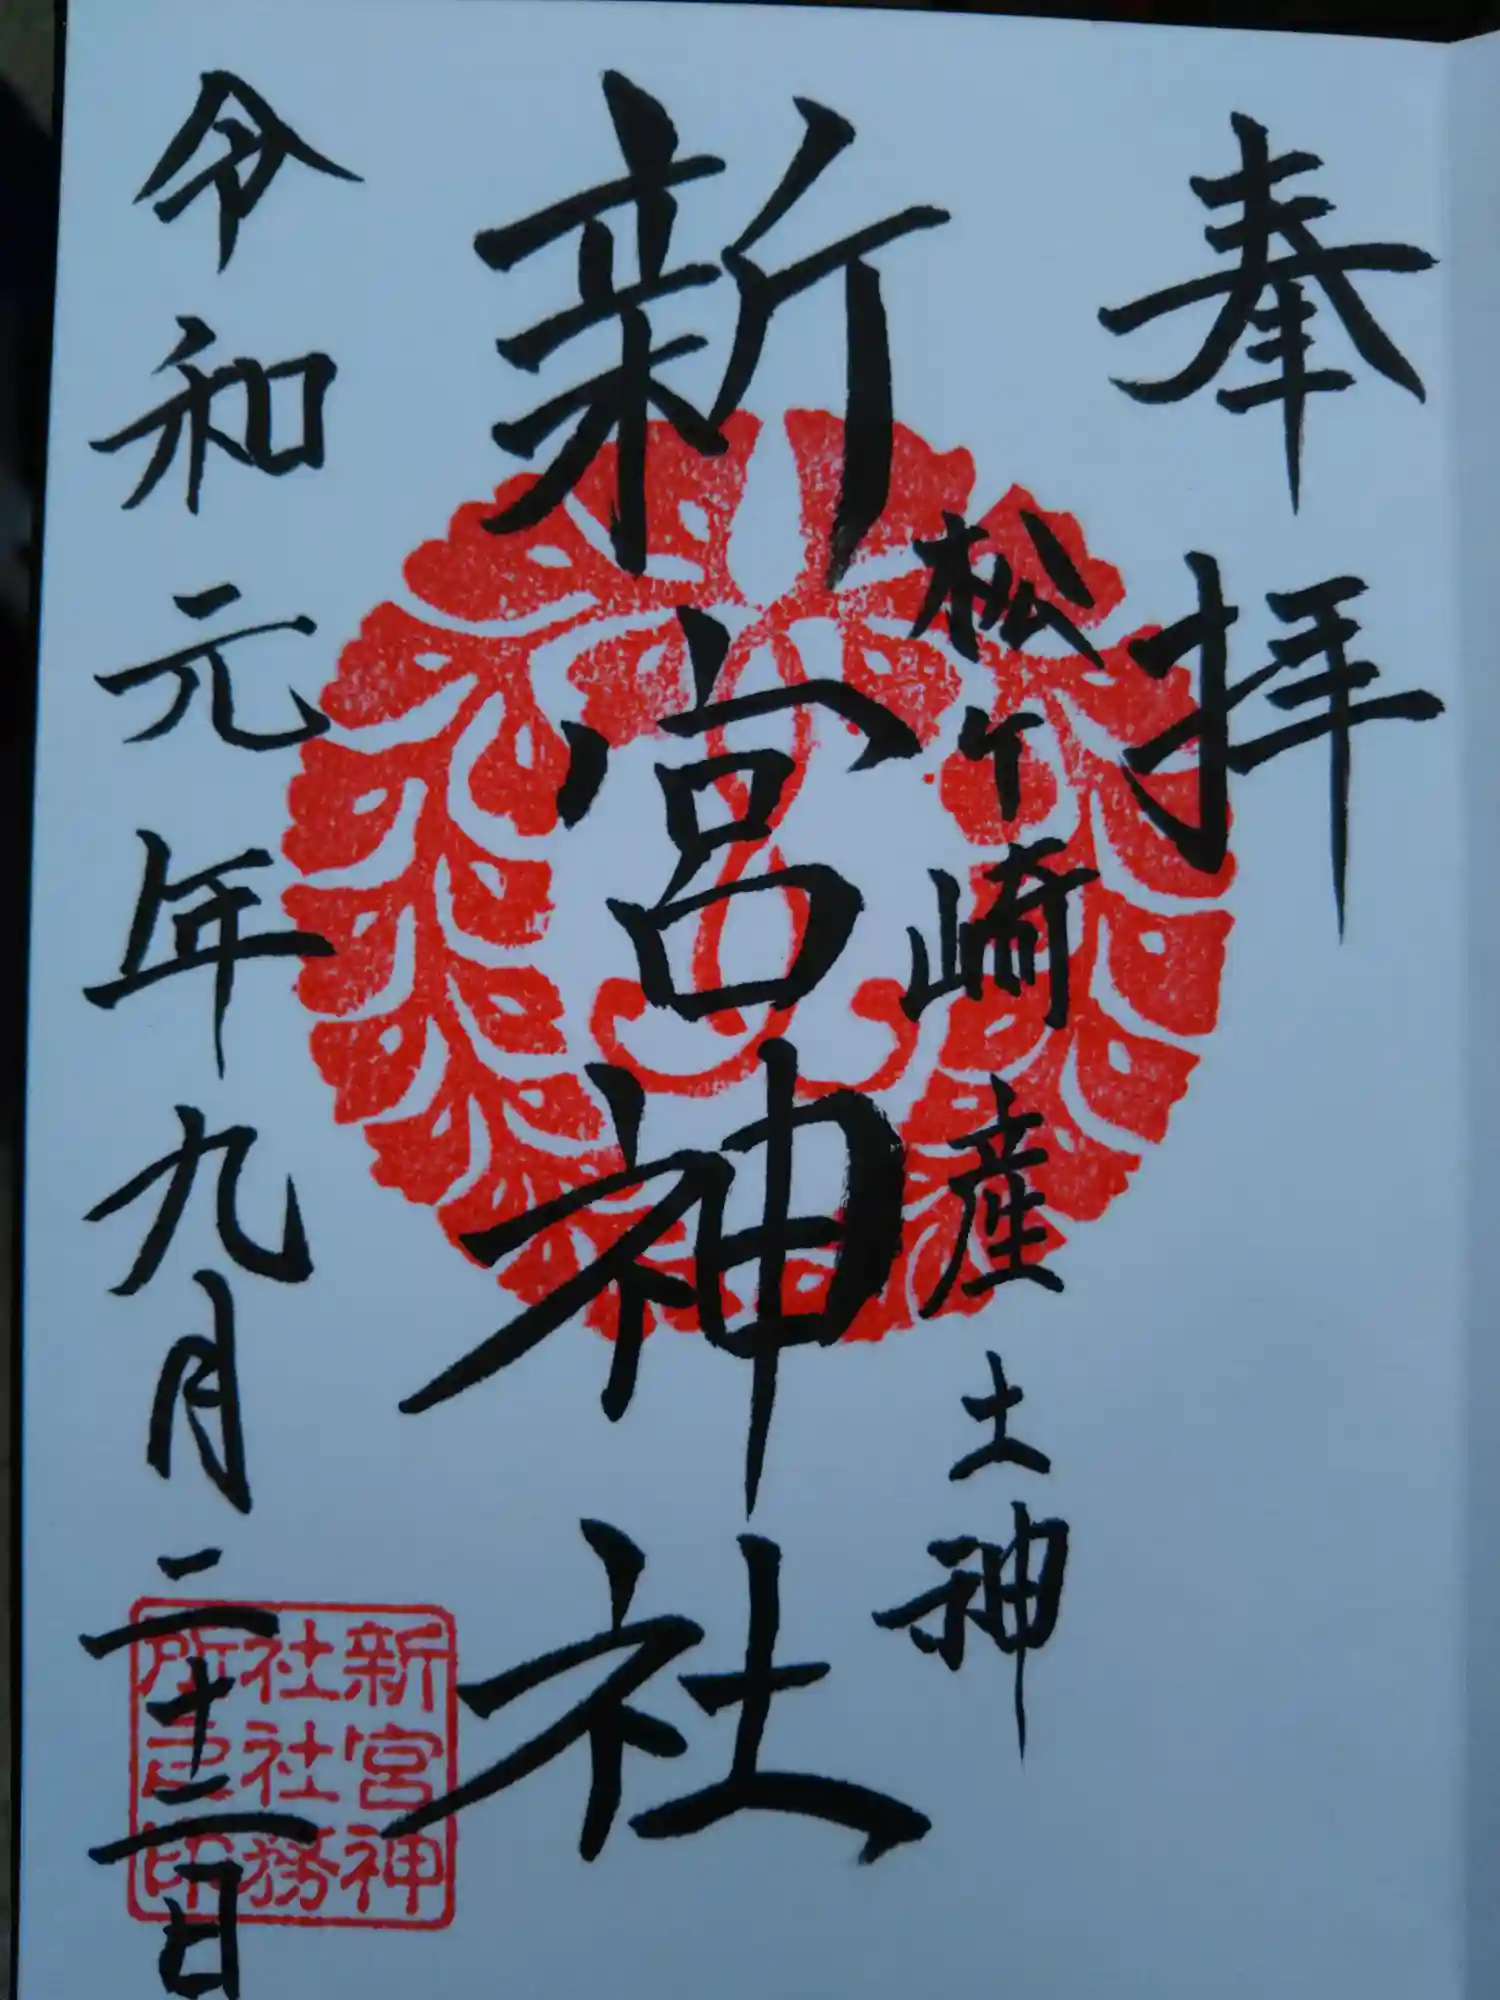 奉拝
松ケ崎産土神
新宮神社
令和元年九月二十二日
新宮神
社社務
所之印